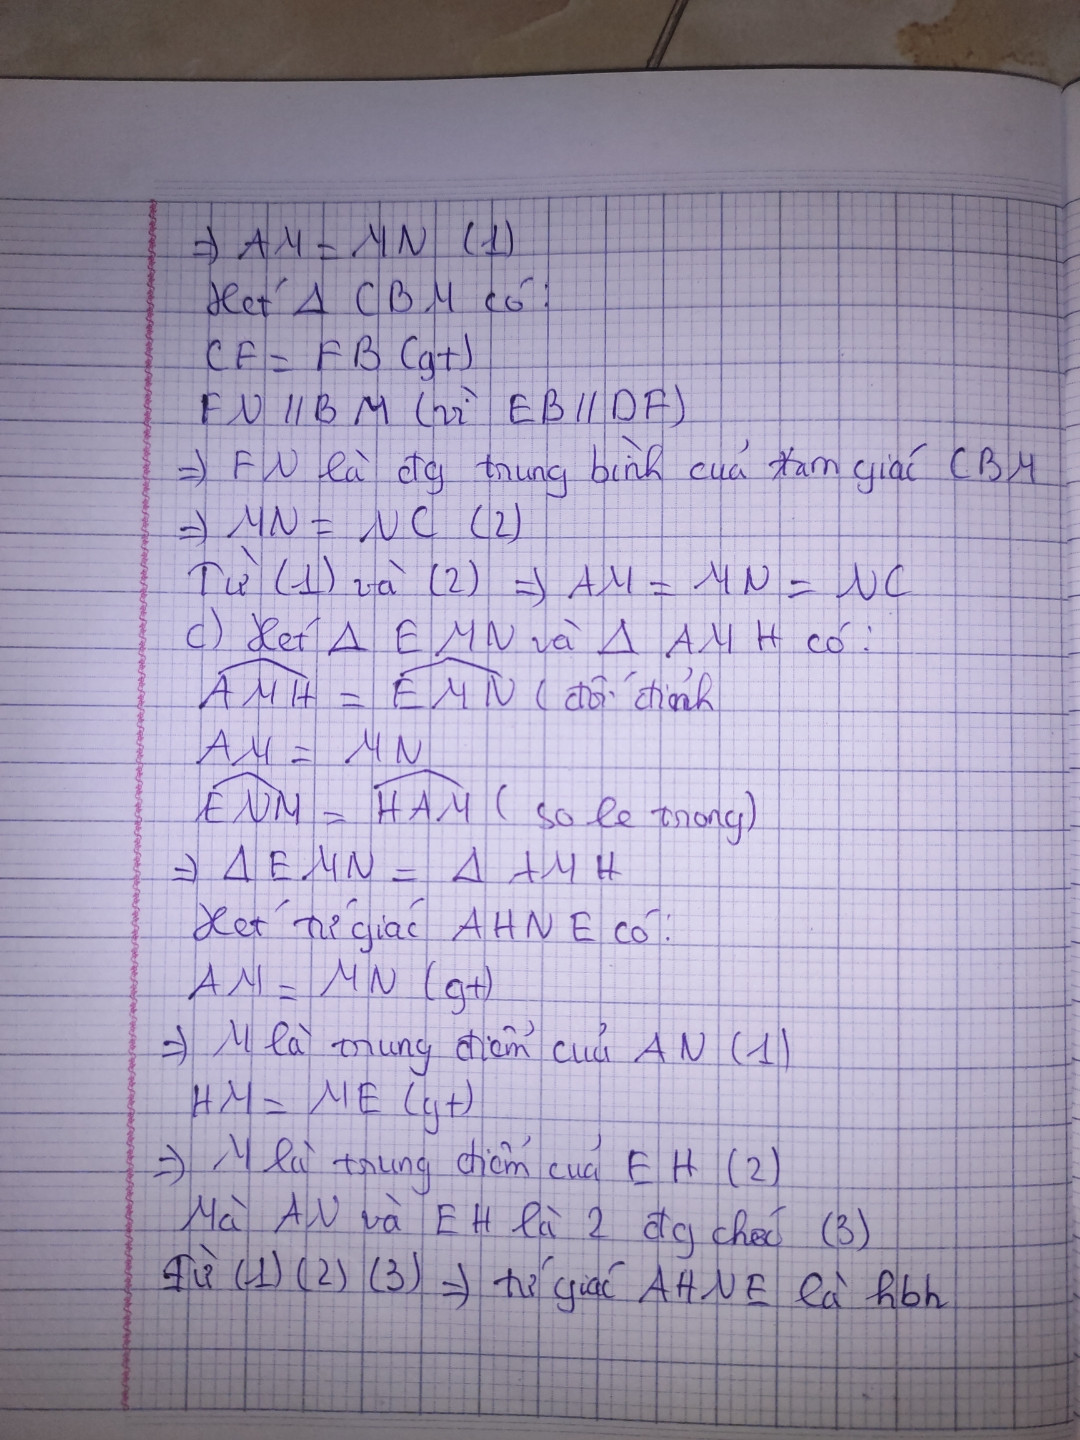 => AM = MN (1)
Xét Δ CBM có:
CF = FB (gt)
FN // BM (vì EB // DF)
=> FN là đg trung bình của tam giác CBM
=> MN = NC (2)
Từ (1) và (2) => AM = MN = NC
c) Xét Δ EMN và Δ AMH có:
AMH = EMN (đối đỉnh
AM = MN
ENM = HAM ( so le trong)
=> Δ EMN = Δ AMH
Xét tứ giác AHNE có:
AM = MN (gt)
=> M là trung điểm của AN (1)
HM = ME (gt)
=> M là trung điểm của EH (2)
Mà AN và EH là 2 đg chéo (3)
Từ (1) (2) (3) => tứ giác AHNE là hbh